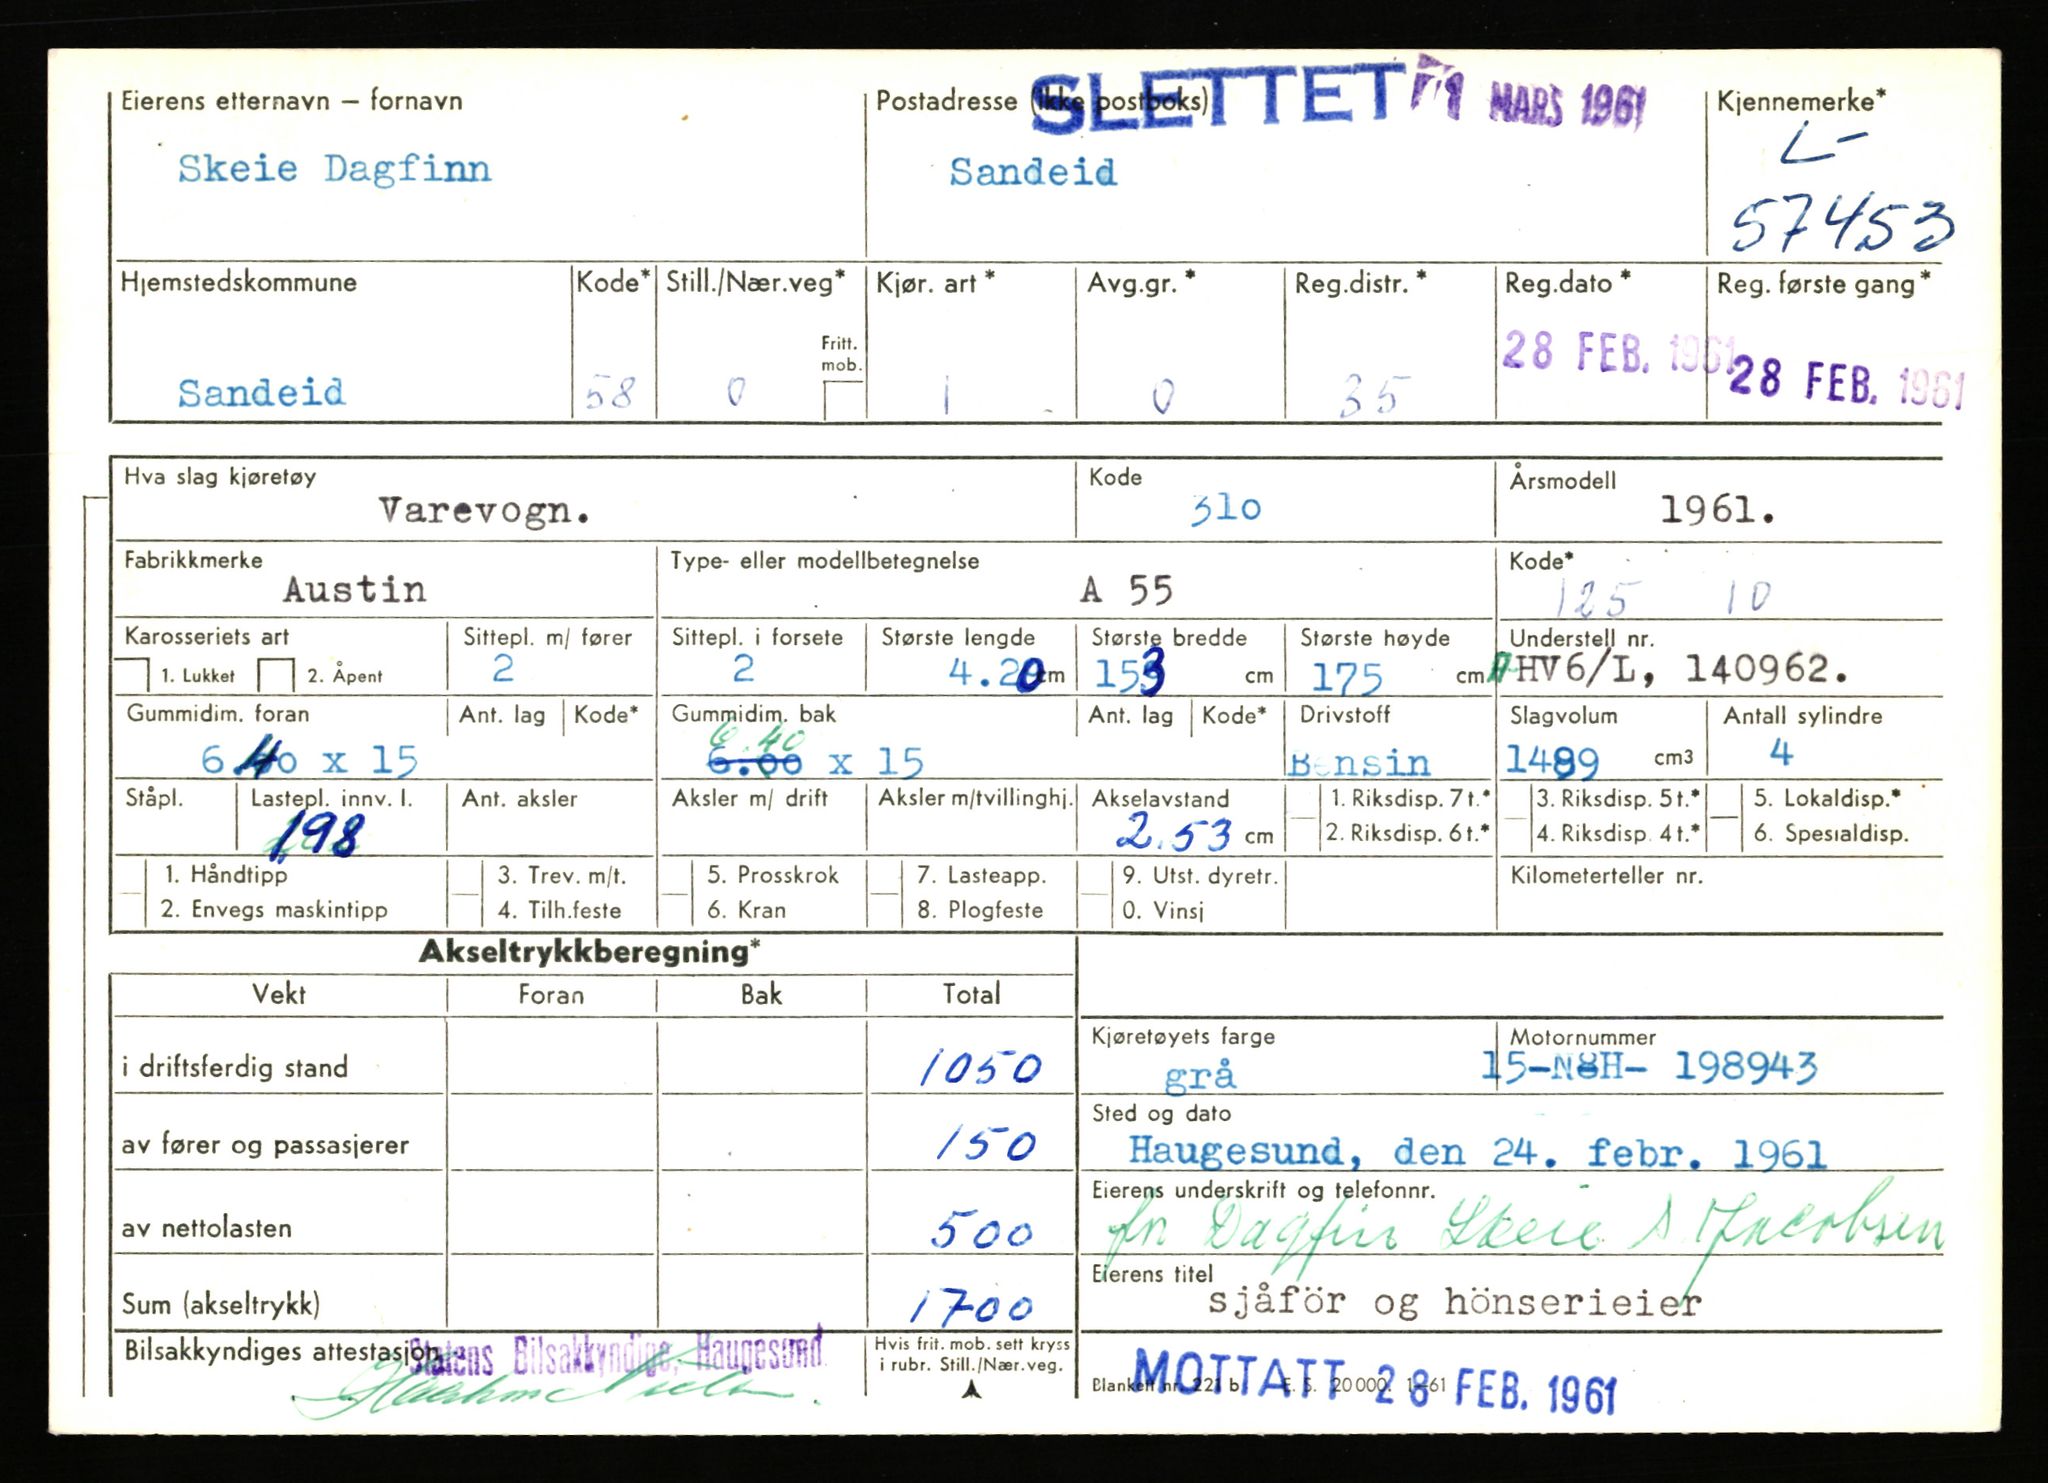 Eierens etternavn – fornavn
Postadresse (ikke postboks)
SLETTET MARS 1961
Kjennemerke*
Skeie Dagfinn
Sandeid
L-
57453
Hjemstedskommune
Kode*
Still./Nær.veg*
Kjør. art *
Avg.gr. *
Reg.distr. *
Reg.dato *
Reg. første gang *
Fritt. mob.
Sandeid
58
0
1
0
35
28 FEB. 1961
28 FEB. 1961
Hva slag kjøretøy
Kode
Årsmodell
Varevogn.
310
1961.
Fabrikkmerke
Type- eller modellbetegnelse
Kode*
Austin
A 55
125 10
Karosseriets art
Sittepl. m/ fører
Sittepl. i forsete
Største lengde
Største bredde
Største høyde
Understell nr.
1. Lukket
2. Åpent
2
2
4.20 cm
153 cm
175 cm
AHV6/L, 140962.
Gummidim. foran
Ant. lag
Kode*
Gummidim. bak
Ant. lag
Kode*
Drivstoff
Slagvolum
Antall sylindre
6.40 x 15
6.40
6.00 x 15
Bensin
1489 cm3
4
Ståpl.
Lastepl. innv. l.
Ant. aksler
Aksler m/ drift
Aksler m/tvillinghj.
Akselavstand
1. Riksdisp. 7 t.*
3. Riksdisp. 5 t.*
5. Lokaldisp.*
198
2.53 cm
2. Riksdisp. 6 t.*
4. Riksdisp. 4 t.*
6. Spesialdisp.
1. Håndtipp
3. Trev. m/t.
5. Prosskrok
7. Lasteapp.
9. Utst. dyretr.
Kilometerteller nr.
2. Envegs maskintipp
4. Tilh.feste
6. Kran
8. Plogfeste
0. Vinsj
Akseltrykkberegning*
Vekt
Foran
Bak
Total
i driftsferdig stand
1050
Kjøretøyets farge
Motornummer
grå
15-N8H- 198943
av fører og passasjerer
150
Sted og dato
Haugesund, den 24. febr. 1961
av nettolasten
500
Eierens underskrift og telefonnr.
fn Dagfin Skeie A Jacobsen
Sum (akseltrykk)
1700
Eierens titel
sjåför og hönserieier
Bilsakkyndiges attestasjon
Statens Bilsakkyndige, Haugesund
Hvis frit. mob. sett kryss
i rubr. Still./Nær.veg.
MOTTATT 28 FEB. 1961
Blankett nr. 221 b E. S. 20 000. 1-61